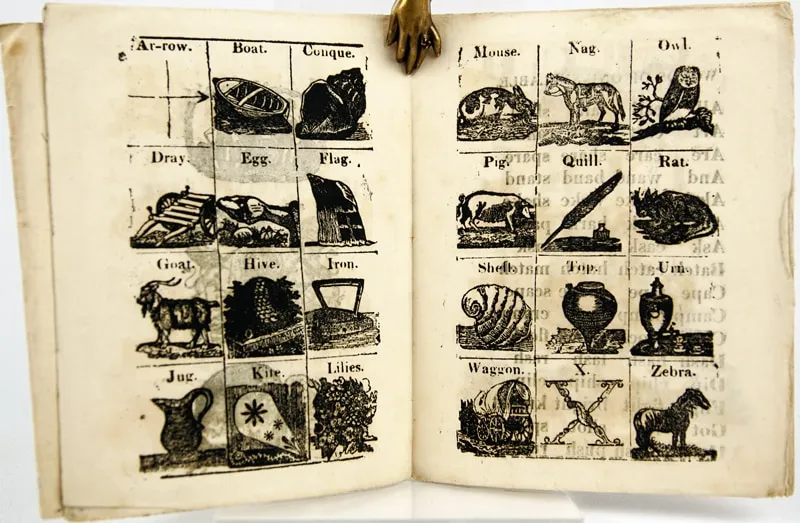 Ar-row. Boat. Conque.
Dray. Egg. Flag.
Goat. Hive. Iron.
Jug. Kite. Lilies.
Mouse. Nag. Owl.
Pig. Quill. Rat.
Shell. Top. Urn.
Waggon. X. Zebra.